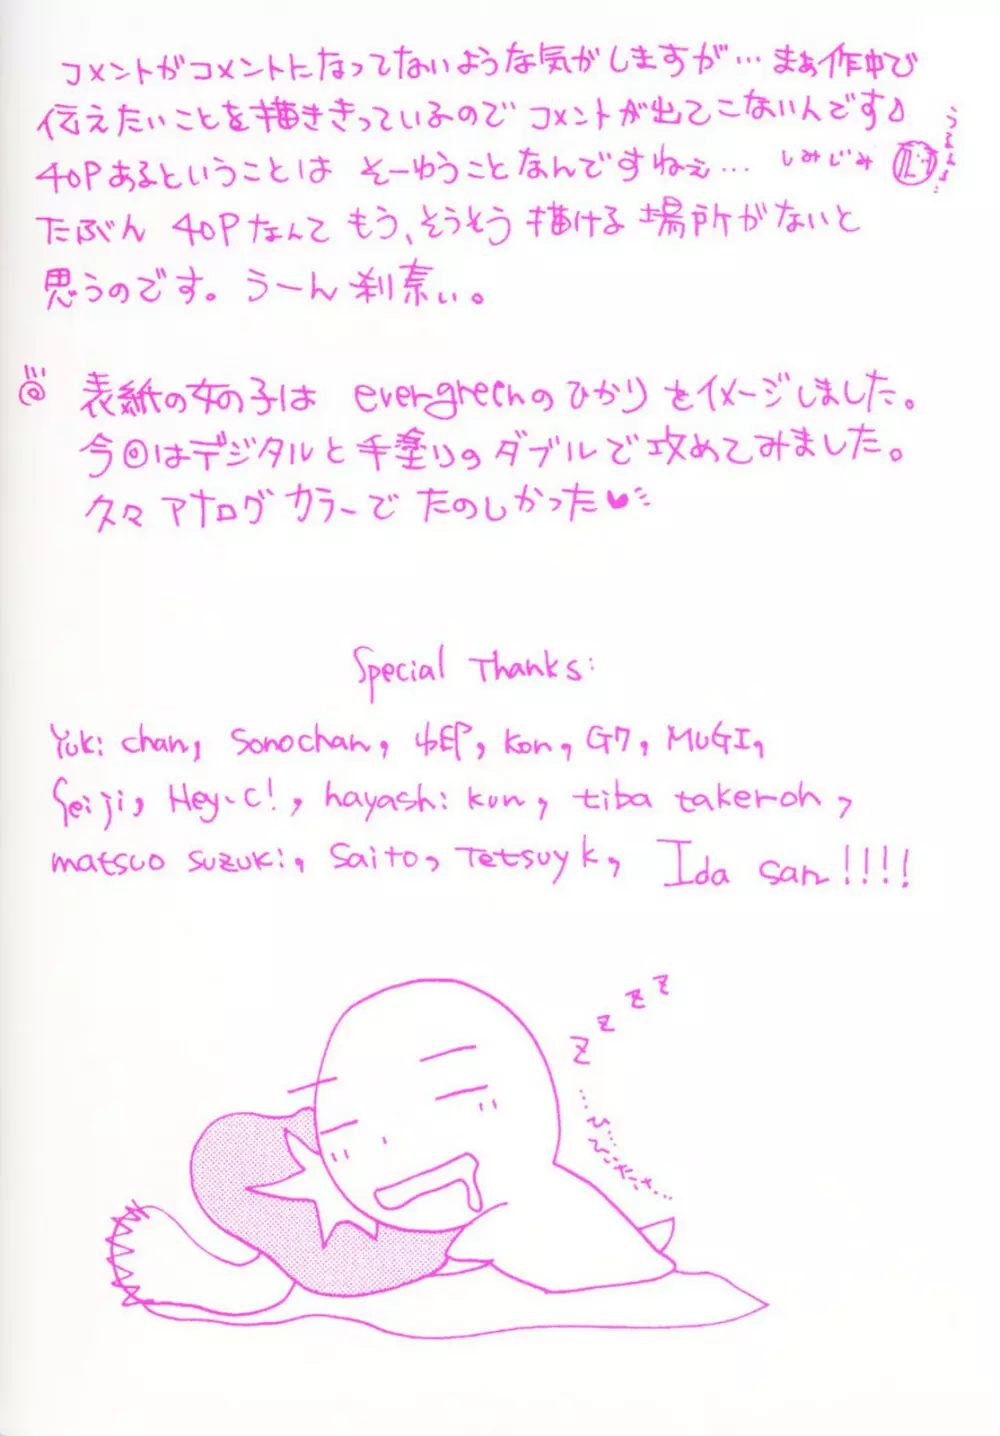 コメントがコメントになってないような気がしますが…まぁ作中で
伝えたいことを描ききっているのでコメントが出てこないんです♪
40Pあるということは そーゆうことなんですねぇ… しみじみ
たぶん 40Pなんて もう、そうそう描ける場所がないと
思うのです。うーん 刹素い。
表紙の女の子は evergreenのひかりをイメージしました。
今回はデジタルと手塗りのダブルで攻めてみました。
久々アナログカラーでたのしかった♥
Special Thanks:
Yuki chan, Sonochan, 中EP, Kon, G7, MUGI,
Seiji, Hey-C!, hayashi kun, tiba takeroh,
matsuo suzuki, Saito, Tetsuyk, Ida san!!!!
z z z z